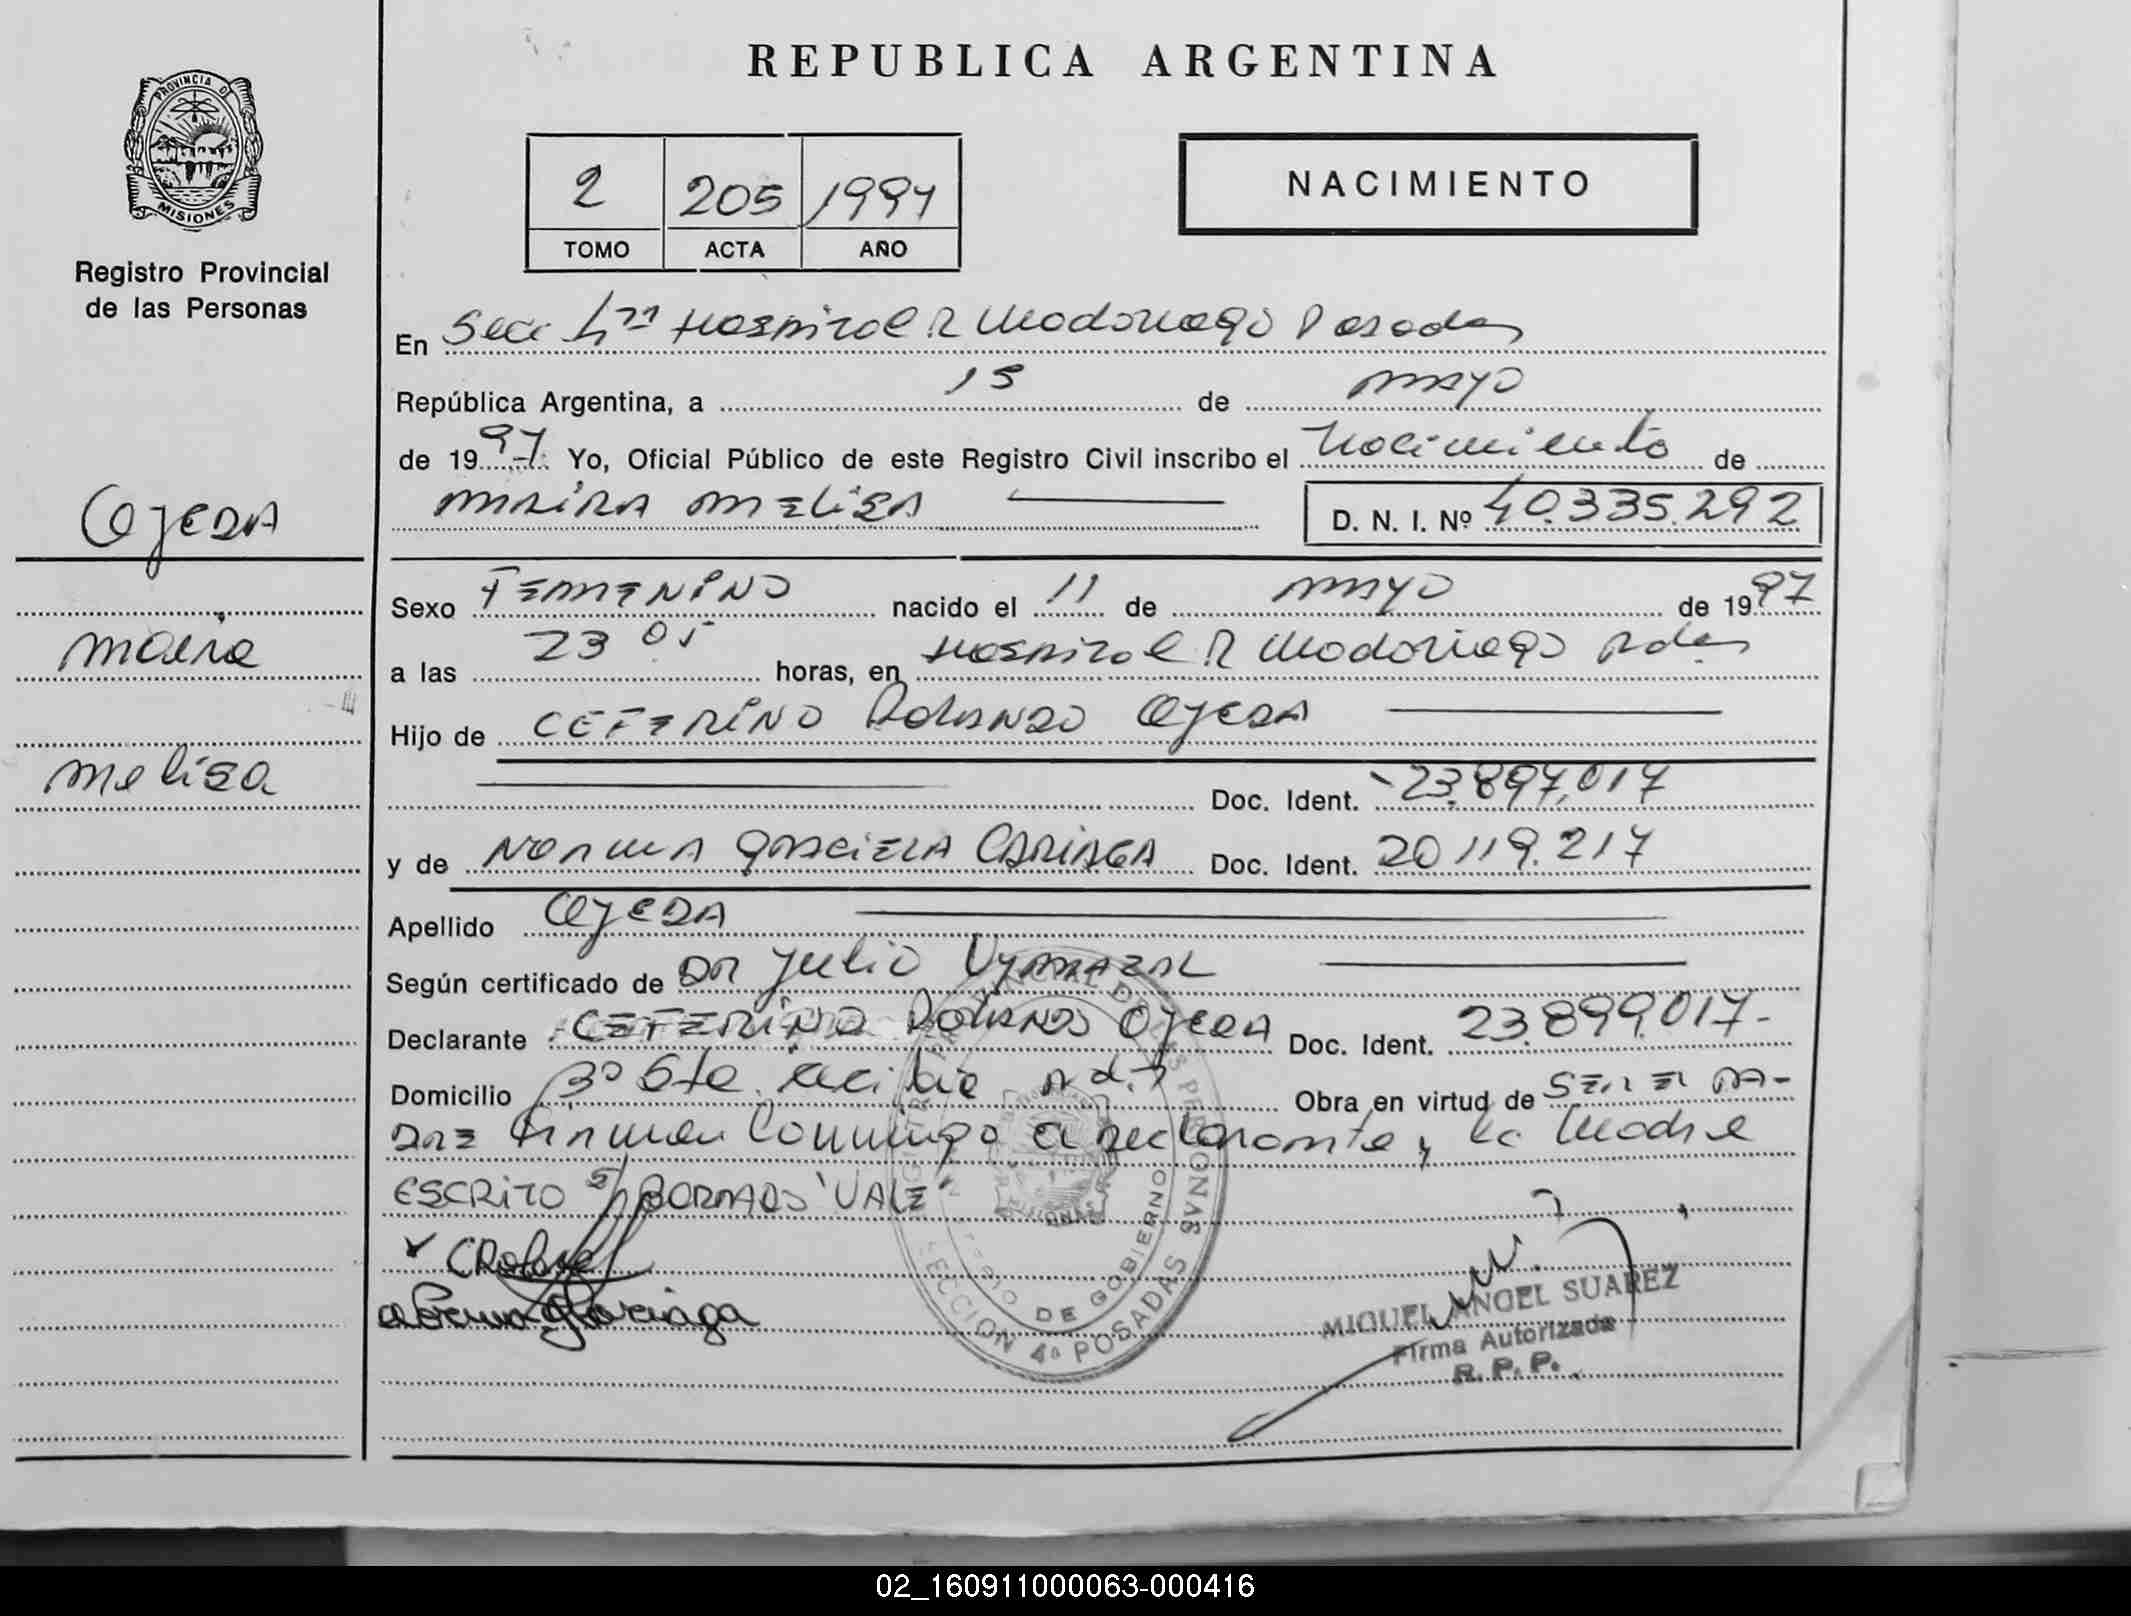 REPUBLICA ARGENTINA
PROVINCIA DE
MISIONES
Registro Provincial
de las Personas
2 205 1997
TOMO ACTA AÑO
NACIMIENTO
En Secc 4ta Hospital R Madariaga Posadas
República Argentina, a 15 de mayo
de 1997. Yo, Oficial Público de este Registro Civil inscribo el Nacimiento de
MAIRA MELISA D. N. I. Nº 40.335.292
OJEDA
Maira
Melisa
Sexo FEMENINO nacido el 11 de MAYO de 1997
a las 23 05 horas, en Hospital R Madariaga Pdas
Hijo de CEFERINO ROLANDO OJEDA
Doc. Ident. 23.897.017
y de NORMA GRACIELA CARIAGA Doc. Ident. 20.119.217
Apellido OJEDA
Según certificado de DR JULIO VYMAZAL
Declarante CEFERINO ROLANDO OJEDA Doc. Ident. 23.899.017-
Domicilio Pdas Obra en virtud de SER EL PA-
DRE Firman Conmigo el declarante y la Madre
ESCRITO S/ BORRADO "VALE"
DE GOBIERNO
SECCION 4a POSADAS
MIGUEL ANGEL SUAREZ
Firma Autorizada
R. P. P.
02_160911000063-000416